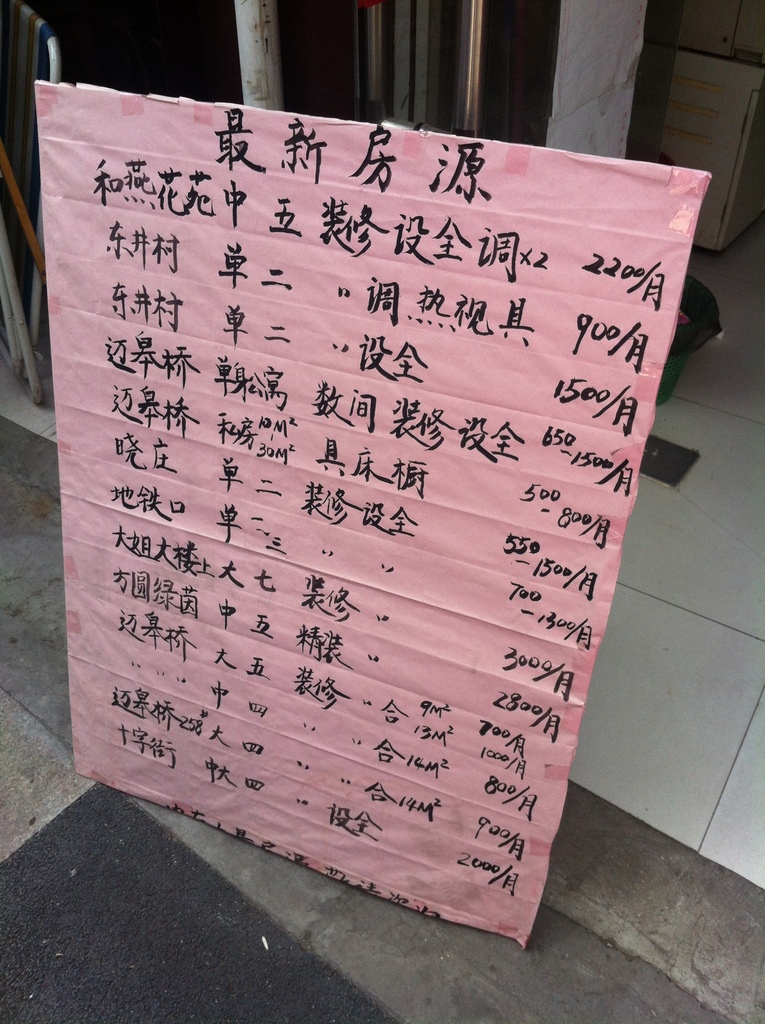 最新房源
和燕花苑 中 五 装修设全调x2 2200/月
东井村 单 二 〃 调热视具 900/月
东井村 单 二 〃 设全 1500/月
迈皋桥 单身公寓 数间 装修设全 650-1500/月
迈皋桥 私房 10M² 30M² 具床橱 500-800/月
晓庄 单 二 装修设全 550-1500/月
地铁口 单 二.三 〃 〃 700-1300/月
大姐大楼上 大 七 装修 〃 3000/月
方圆绿茵 中 五 精装 〃 2800/月
迈皋桥 大 五 装修 〃 合 9M² 13M² 700/月 1000/月
〃 〃 〃 中 四 〃 〃 合 14M² 800/月
迈皋桥258# 大 四 〃 〃 合 14M² 900/月
十字街 中大 四 〃 设全 2000/月